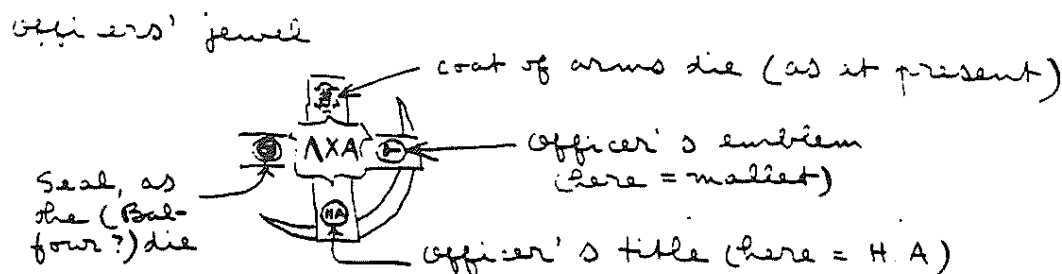 officers' jewel
coat of arms die (as at present)
ΛΧΑ
Officer's emblem
(here = mallet)
Seal, as
the (Bal-
four?) die
HA
Officer's title (here = H A)